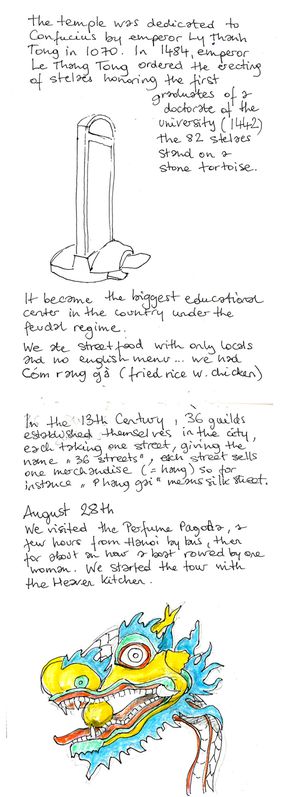 the temple was dedicated to
Confucius by emperor Ly Thanh
Tong in 1070. In 1484, emperor
Le Thang Tong ordered the erecting
of stelaes honoring the first
graduates of a
doctorate of the
university (1442)
the 82 stelaes
stand on a
stone tortoise.
It became the biggest educational
center in the country under the
feudal regime.
We ate street food with only locals
and no english menu... we had
Cóm rang gà (fried rice w. chicken)
In the 13th Century, 36 guilds
established themselves in the city,
each taking one street, giving the
name "36 streets", each street sells
one merchandise (= hang) so for
instance "Phang gai" means silk street.
August 28th
We visited the Perfume Pagoda, a
few hours from Hanoi by bus, then
for about an hour a boat rowed by one
woman. We started the tour with
the Heaven Kitchen.